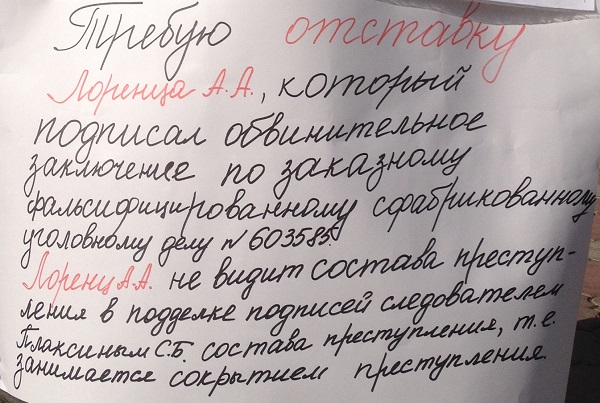 Требую отставку
Лоренца А.А., который
подписал обвинительное
заключение по заказному
фальсифицированному сфабрикованному
уголовному делу № 603585.
Лоренц А.А. не видит состава преступ-
ления в подделке подписей следователем
Плаксиным С.Б. состава преступления, т.е.
занимается сокрытием преступления.